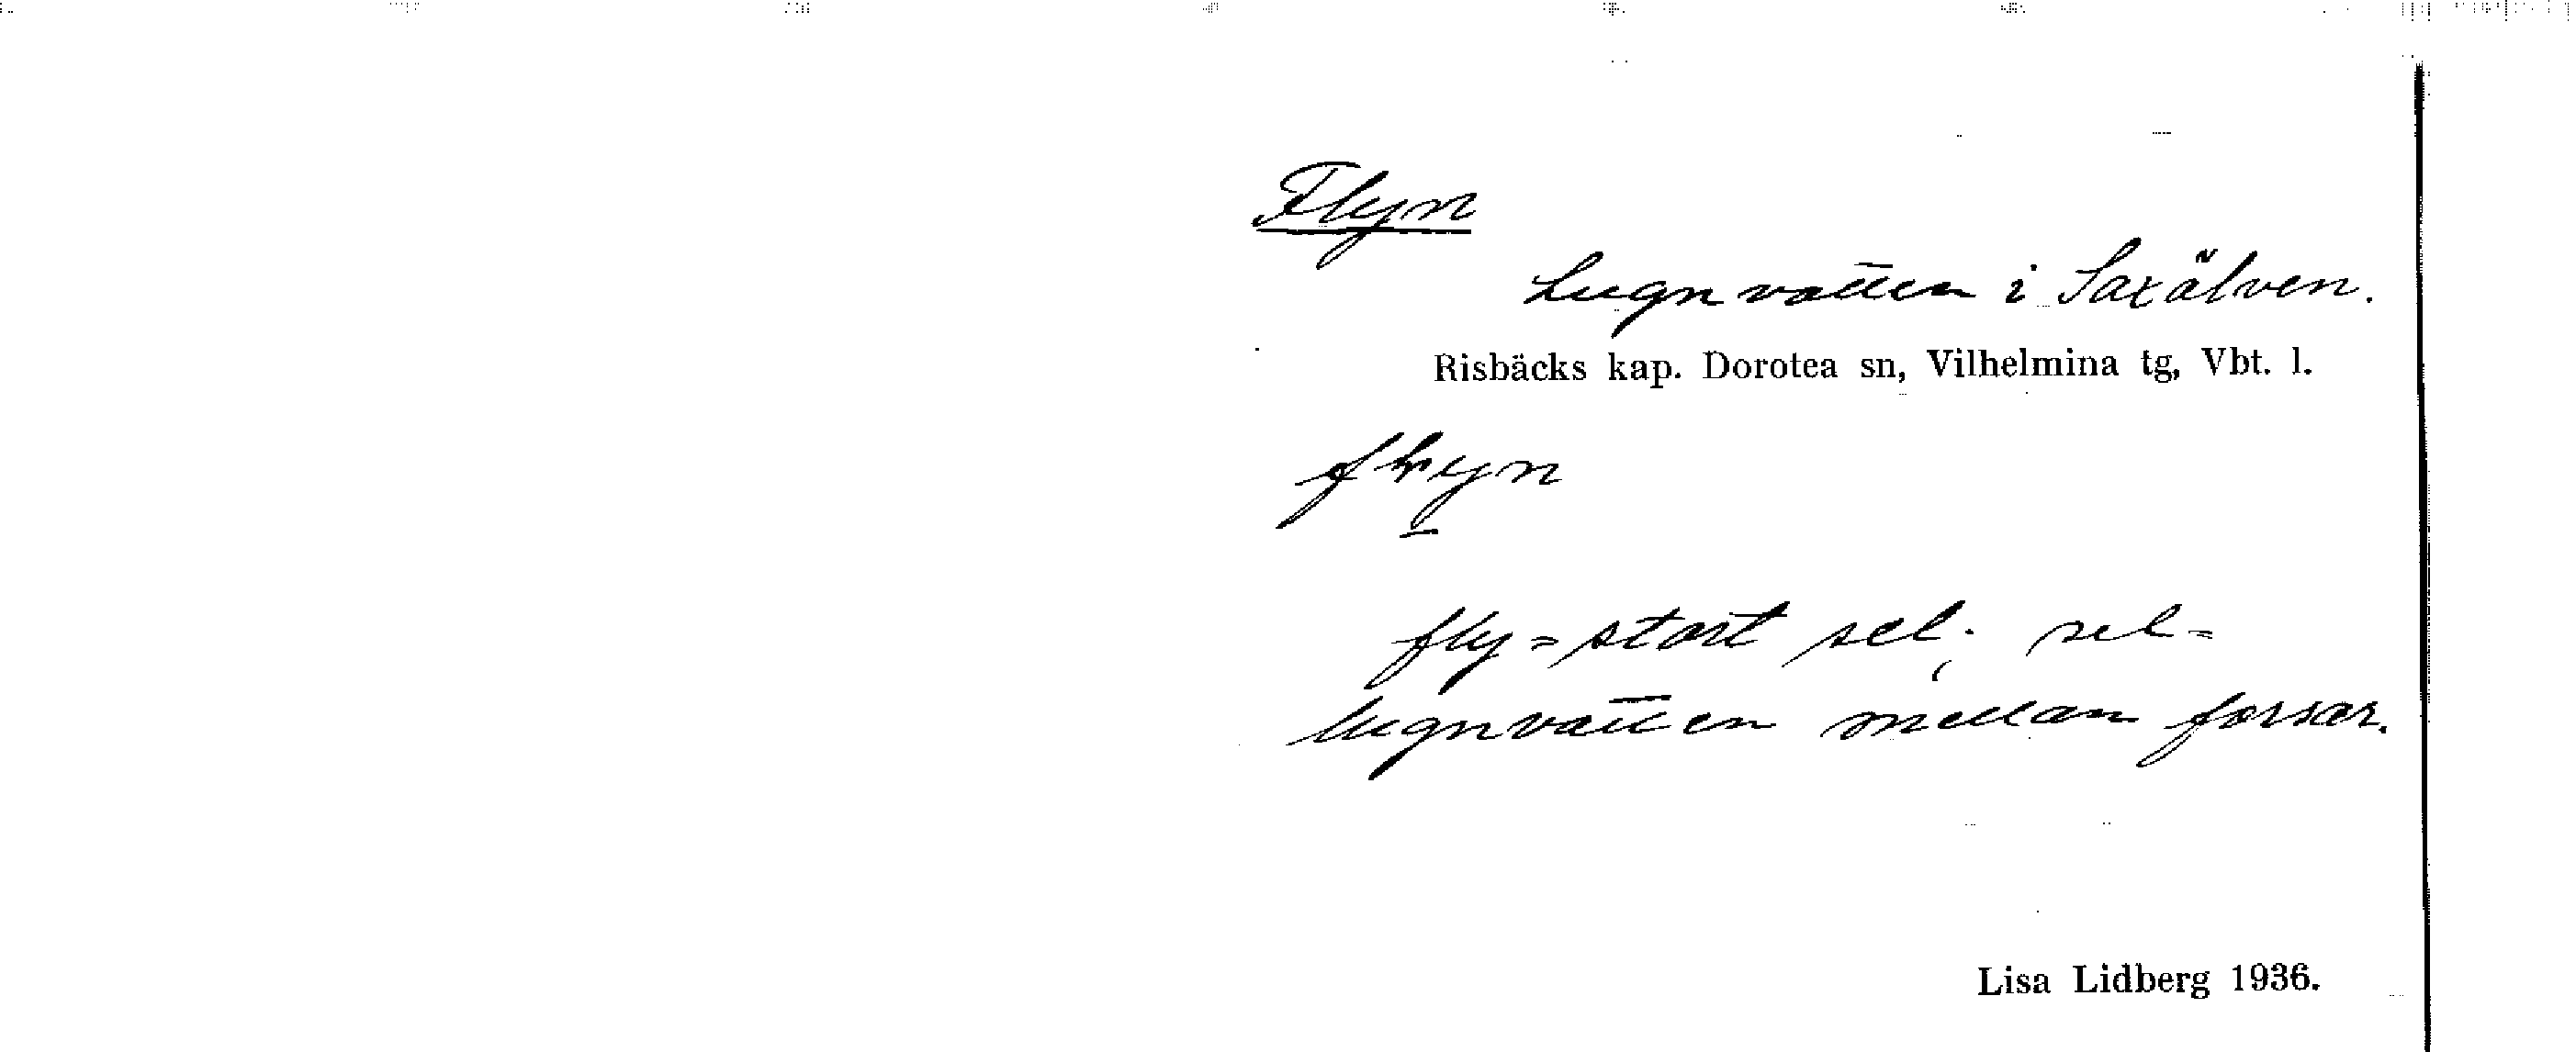 Flyn
Lugnvatten i Saxälven.
Risbäcks kap. Dorotea sn, Vilhelmina tg, Vbt. l.
fly̠n
fly = stort sel; sel =
lugnvatten mellan forsar.
Lisa Lidberg 1936.